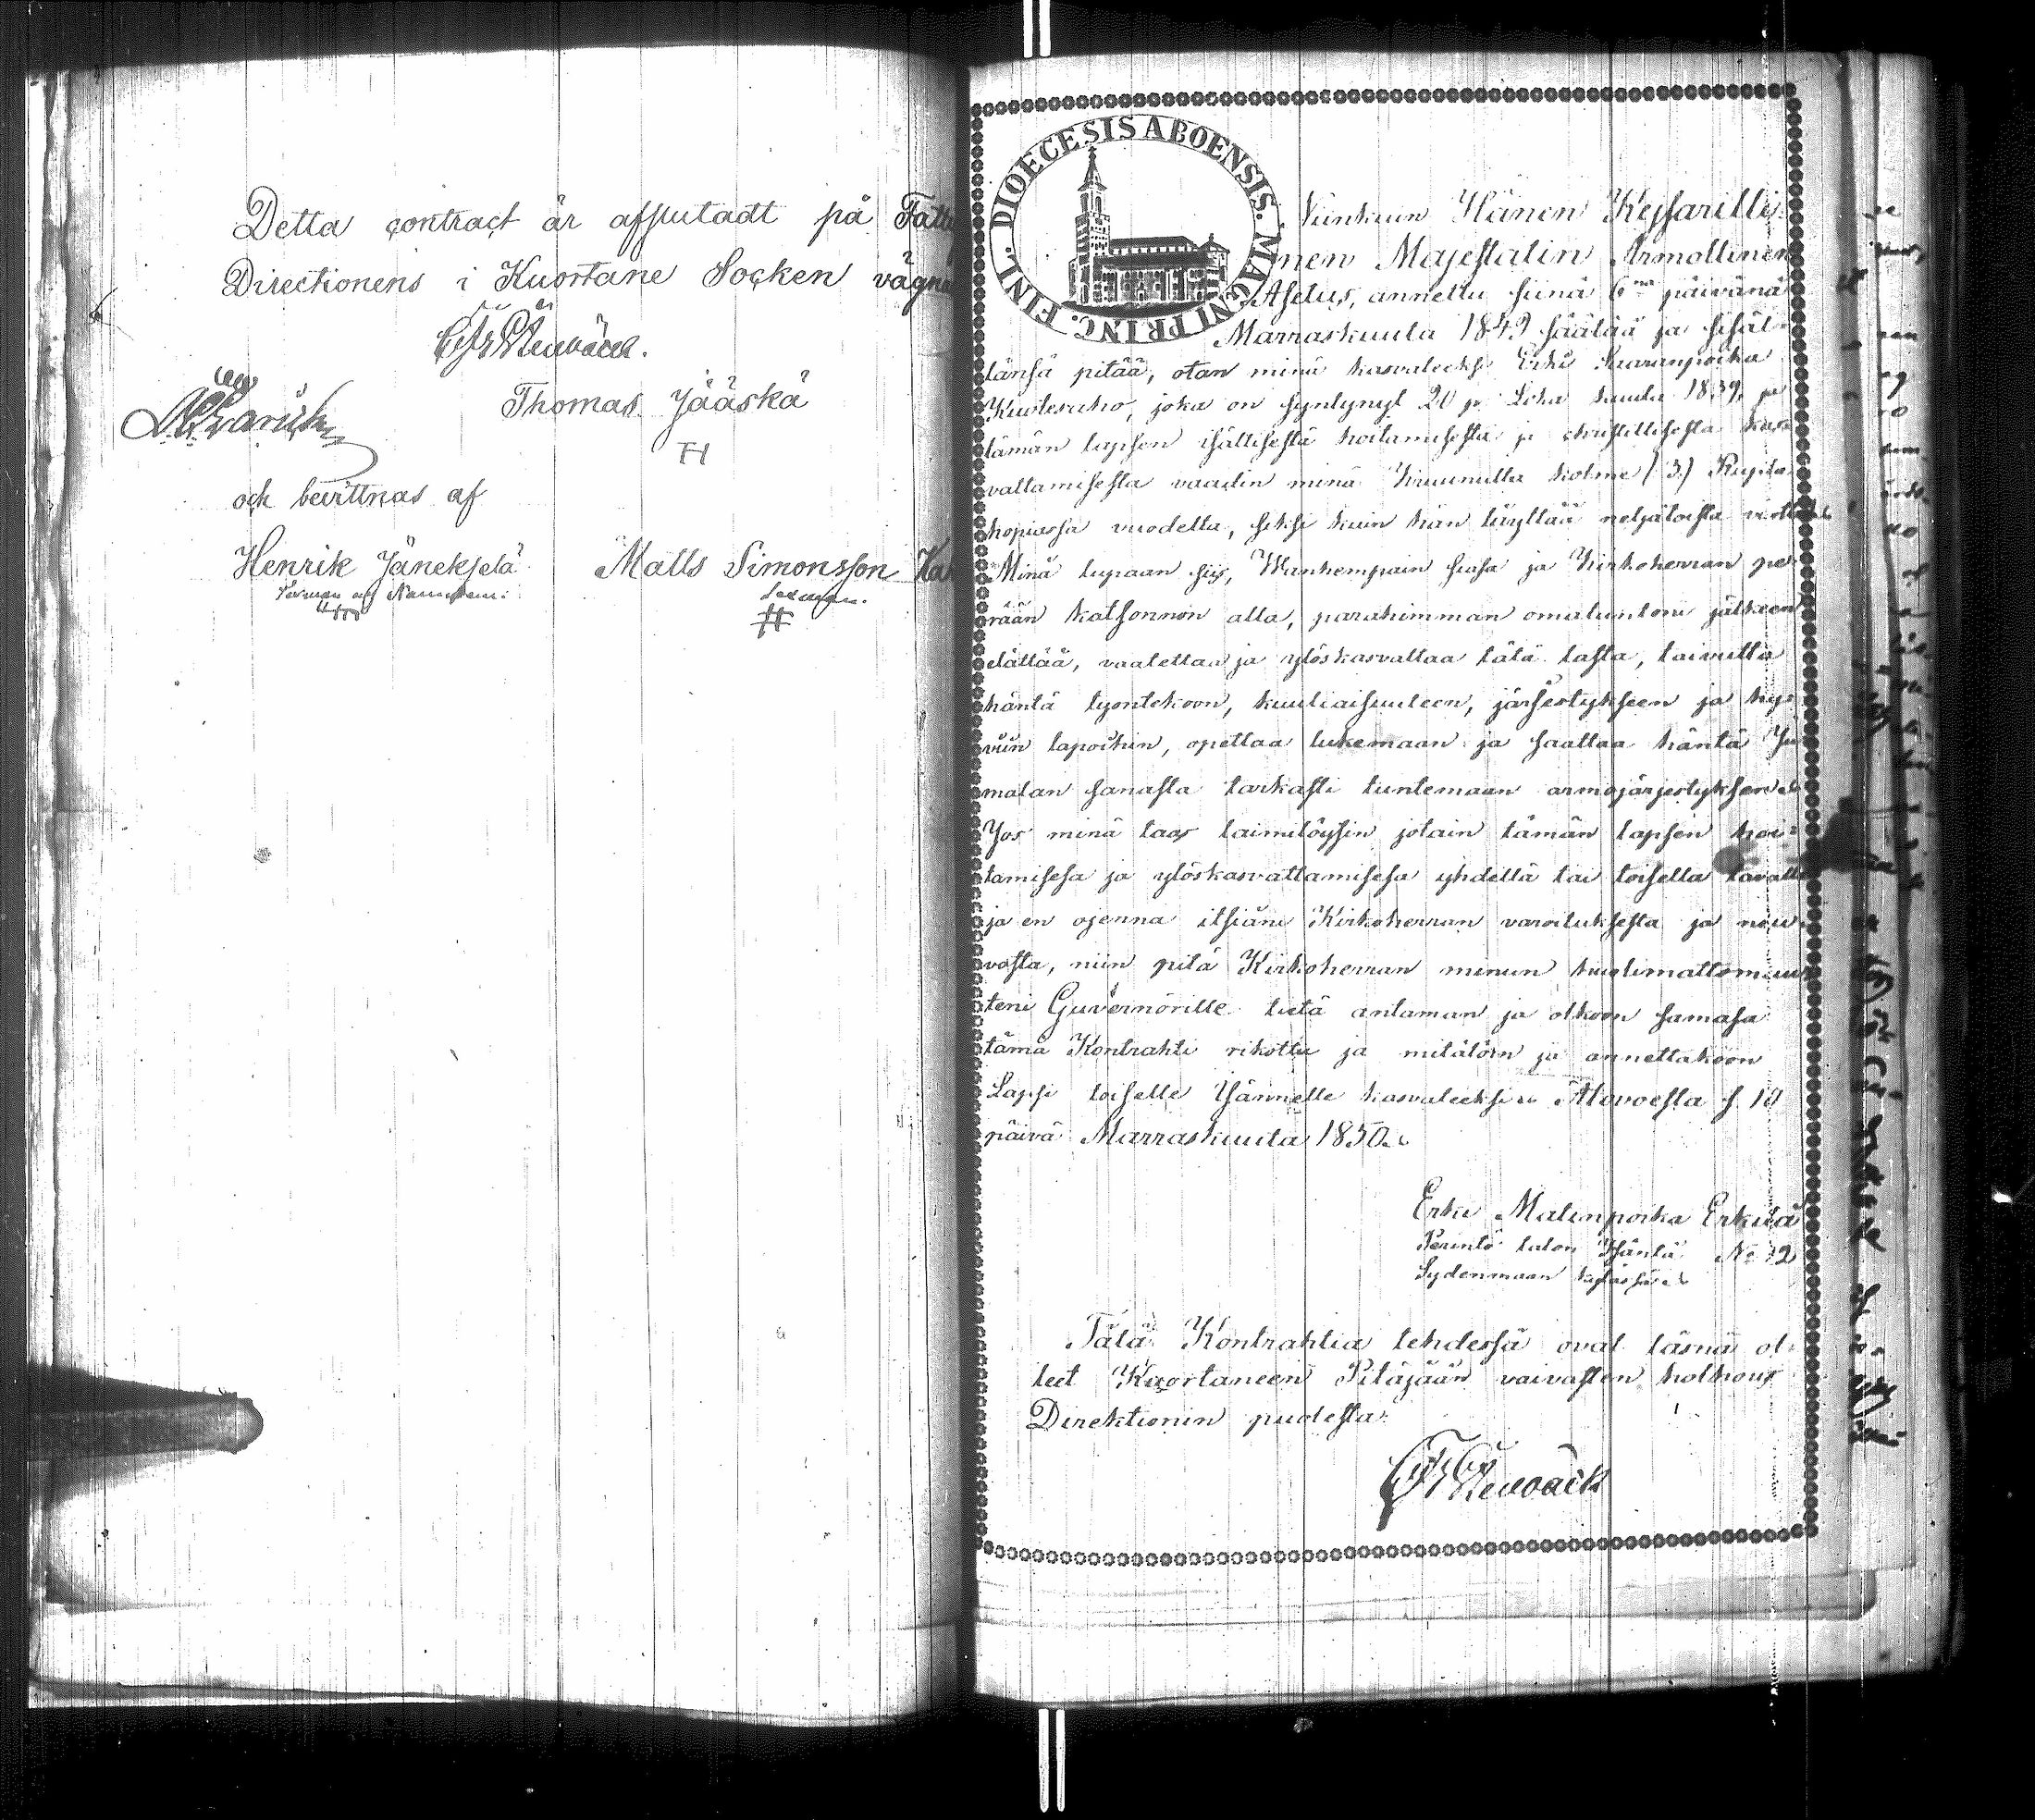 Detta contract är afslutadt på
Directionens i Kuortane Socken
Thomas Jääskä
och bevittnas af
Henrik Jänekselä Matts Simonsson
DIOECESIS ABOENSIS. MAGNI PRINC. FINL.
Niinkuin Hänen Kejsarilli-
nen Majestätin Armollinen
Asetus, annettu siinä 6na päivänä
Marraskuuta 1849 säätää ja sisäl-
länsä pitää, otan minä kasvateeksi Erki Saaranpoika
joka on syntynyt 20 p Loka kuuta 1839, ja
tämän lapsen isällisestä hoitamisesta ja christillisestä kas-
vattamisesta vaadin minä Kruunulta kolme (3) Ruplaa
hopiassa vuodelta, siksi kuin hän täyttää neljätoista
Minä lupaan siis, Wanhempain siasa ja Kirkoherran pe-
rään katsonnon alla, parahimman omatuntoni jälkeen
elättää, vaatettaa ja ylöskasvattaa tätä lasta, taivutta
häntä työntekoon, kuuliaisuuteen, järjestykseen ja hy-
viin tapoihin, opettaa lukemaan ja saattaa häntä Ju-
malan sanasta tarkasti tuntemaan armojärjestyksen
Jos minä taas laimilöysin jotain tämän lapsen hoi-
tamisesa ja ylöskasvattamisesa yhdellä tai toisella tavalla
ja en ojenna itsiäni Kirkoherran varoituksesta ja neu-
vosta, niin pitä Kirkoherran minun huolimattomuu-
teni Guvernörille tietä antaman ja olkoon samasa
tämä Kontrahti rikottu ja mitätöin ja annettakoon
Lapsi toiselle Isännelle kasvateeksi. Alavoesta s. 10
päivä Marraskuuta 1850.
Erki Matinpoika Erkilä
Perintö talon Isäntä No 12
Sydenmaan kyläsä
Tätä Kontrahtia tehdessä ovat läsnä ol-
leet Kuortaneen Pitäjään vaivasten holhous
Direktionin puolesta